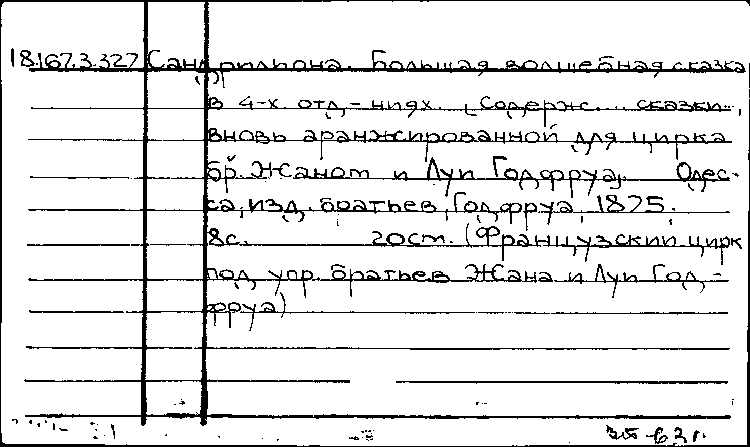 18.167.3.327 Сандрильона. Большая волшебная сказка
в 4-х отд-ниях. [Содерж.... сказки...,
вновь аранжированной для цирка
бр. Жанот и Луи Годфруа]. Одес-
са, изд. братьев Годфруа, 1875.
8с. 20ст. (Французский цирк
под упр. братьев Жана и Луи Год-
фруа)